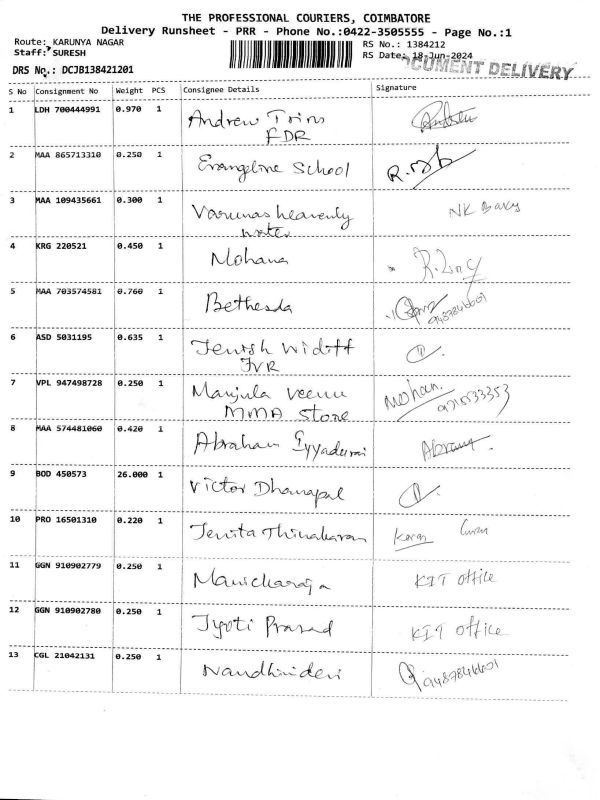 THE PROFESSIONAL COURIERS, COIMBATORE
Delivery Runsheet - PRR - Phone No.:0422-3505555 - Page No.:1
Route: KARUNYA NAGAR
RS No.: 1384212
Staff: SURESH
RS Date: 18-Jun-2024
DOCUMENT DELIVERY
DRS No.: DCJB138421201
S No Consignment No Weight PCS Consignee Details Signature
1 LDH 700444991 0.970 1 Andrew Trins
FDR
2 MAA 865713310 0.250 1 Evangeline School
3 MAA 109435661 0.300 1 Varunas heavenly
water
4 KRG 220521 0.450 1 Mohana
5 MAA 703574581 0.760 1 Bethesda 9487846601
6 ASD 5031195 0.635 1 Jenish
JVR
7 VPL 947498728 0.250 1 Manjula Veenu Mohan.
MMA Store
8 MAA 574481060 0.420 1 Abraham Iyyadurai
9 BOD 450573 26.000 1 Victor Dhanapal
10 PRO 16501310 0.220 1 Jenita Thinakaran
11 GGN 910902779 0.250 1 Manickaraja KIT office
12 GGN 910902780 0.250 1 Jyoti Prasad KIT office
13 CGL 21042131 0.250 1 Nandhinidevi 9487846601